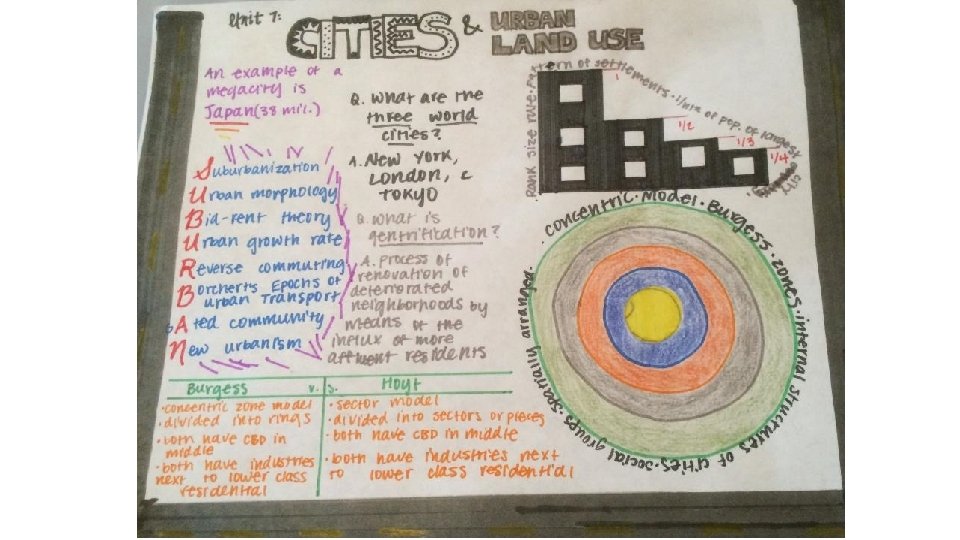 Unit 7:
CITIES & URBAN
LAND USE
An example of a
megacity is
Japan(38 mil.)
Q. What are the
three world
cities?
A. New York,
London, &
TOKYO
Q. What is
gentrification?
A. Process of
renovation of
deteriorated
neighborhoods by
means of the
influx of more
affluent residents
Suburbanization
Urban morphology
Bid-rent theory
Urban growth rate
Reverse commuting
Borchert's Epochs of
Urban Transport
Ated community
New urbanism
Rank size rule · pattern of settlements · 1/nth of pop. of largest city
1
1/2
1/3
1/4
concentric · Model · Burgess · zones · internal structures of cities · social groups · spatially arranged
Burgess v.s. Hoyt
· concentric zone model
· divided into rings
· both have CBD in
middle
· both have industries
next to lower class
residential
· sector model
· divided into sectors or pieces
· both have CBD in middle
· both have industries next
to lower class residential